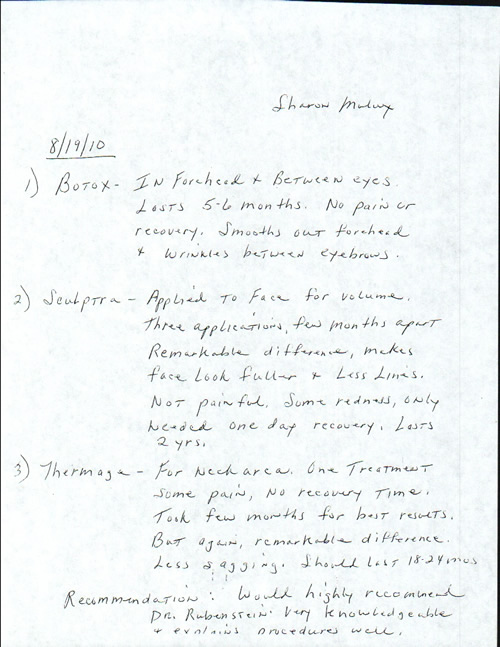 Sharon
8/19/10
1) Botox - In Forehead & Between eyes.
Lasts 5-6 months. No pain or
recovery. Smooths out forehead
& wrinkles between eyebrows.
2) Sculptra - Applied to Face for volume.
Three applications, few months apart
Remarkable difference, makes
face look fuller & Less Lines.
Not painful. Some redness, only
needed one day recovery. Lasts
2 yrs.
3) Thermage - For Neck area. One Treatment
Some pain, No recovery Time.
Took few months for best results.
But again, remarkable difference.
Less sagging. Should last 18-24 mos
Recommendation: Would highly recommend
Dr. Rubenstein. Very knowledgeable
& explains procedures well.